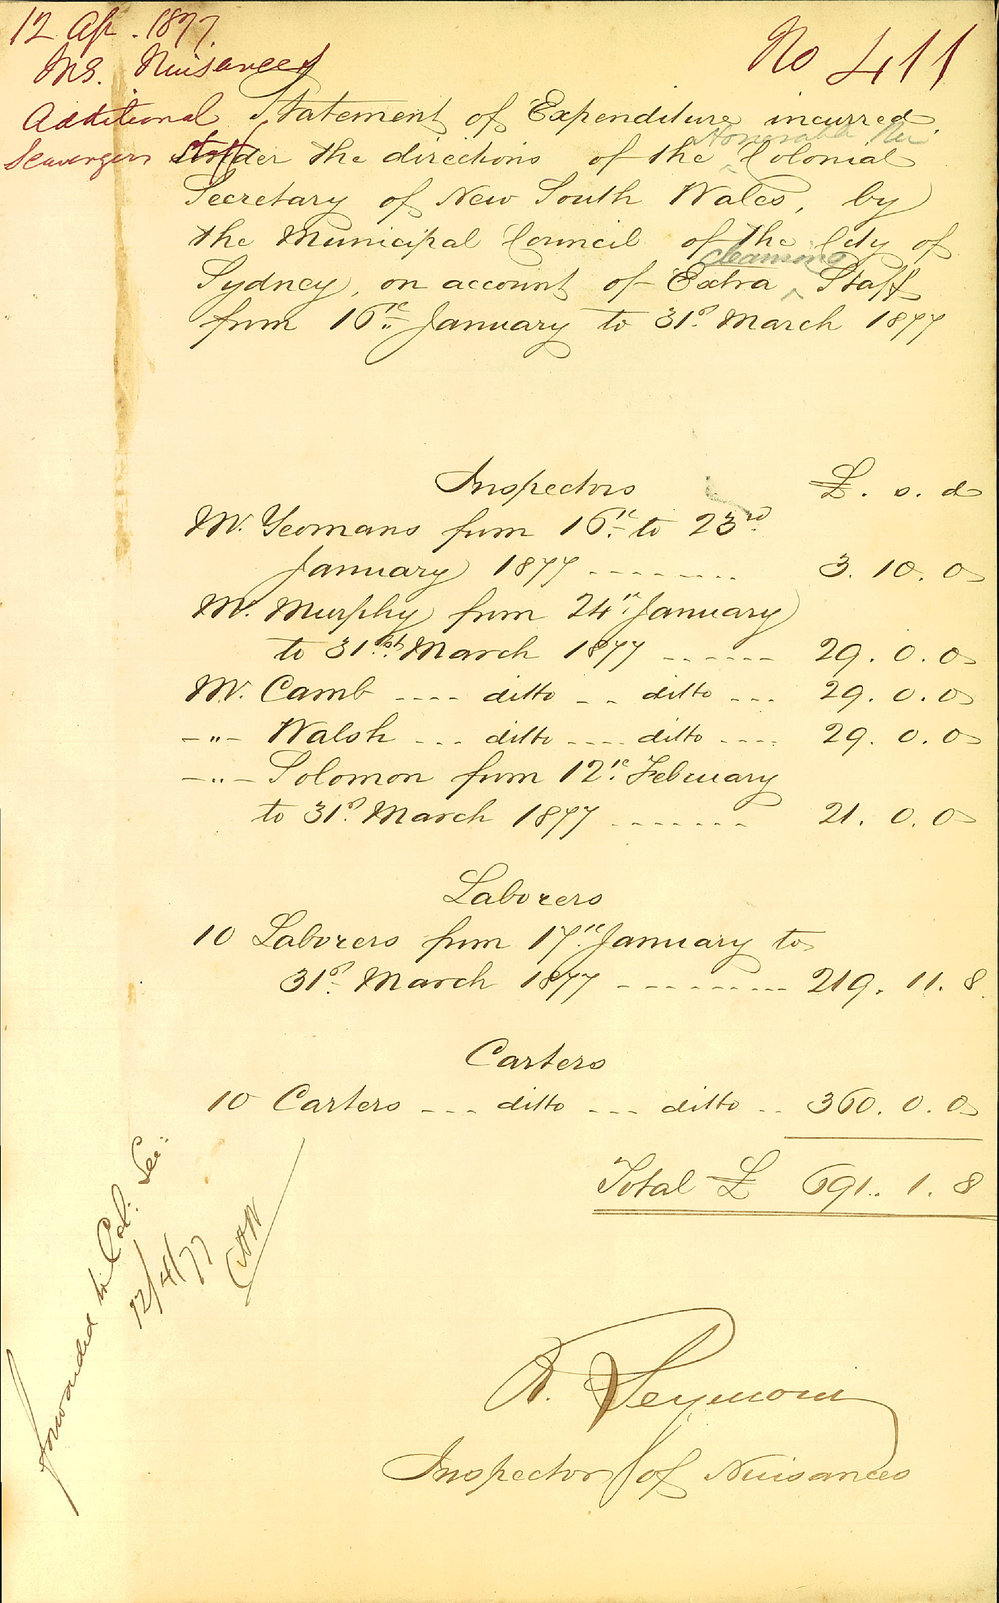 12 Ap. 1877.
No 411
Ins. Nuisances
Additional
Scavengers Staff
Statement of Expenditure incurred
under the directions of the Honorable the Colonial
Secretary of New South Wales, by
the Municipal Council of the City of
Sydney, on account of Extra cleansing Staff
from 16th January to 31st March 1877
Inspectors £. s. d
Mr. Yeomans from 16th to 23rd
January 1877 -------- 3. 10. 0
Mr. Murphy from 24th January
to 31st March 1877 ------ 29. 0. 0
Mr. Camb ---- ditto -- ditto --- 29. 0. 0
-"- Walsh --- ditto ---- ditto ---- 29. 0. 0
-"- Solomon from 12th February
to 31st March 1877 ------- 21. 0. 0
Laborers
10 Laborers from 17th January to
31st March 1877 --------- 219. 11. 8
Carters
10 Carters --- ditto --- ditto -- 360. 0. 0
Total £ 691. 1. 8
Forwarded to Col: Sec:
12/4/77
R. Seymour
Inspector of Nuisances